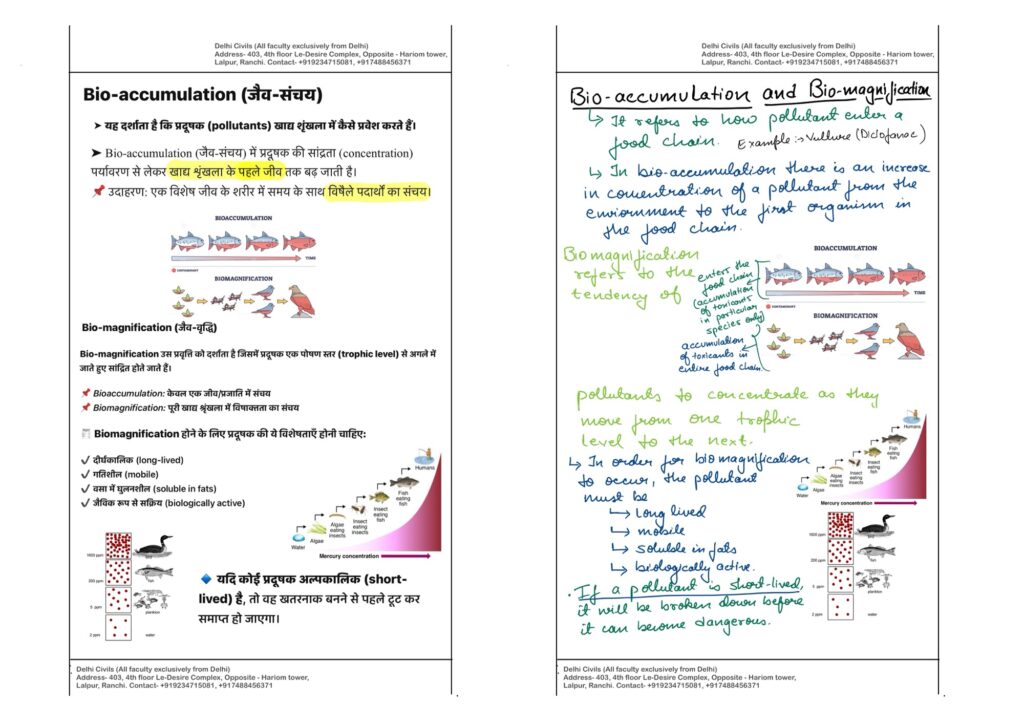 Delhi Civils (All faculty exclusively from Delhi)
Address- 403, 4th floor Le-Desire Complex, Opposite - Hariom tower,
Lalpur, Ranchi. Contact- +919234715081, +917488456371
Bio-accumulation (जैव-संचय)
➤ यह दर्शाता है कि प्रदूषक (pollutants) खाद्य शृंखला में कैसे प्रवेश करते हैं।
➤ Bio-accumulation (जैव-संचय) में प्रदूषक की सांद्रता (concentration)
पर्यावरण से लेकर खाद्य शृंखला के पहले जीव तक बढ़ जाती है।
📌 उदाहरण: एक विशेष जीव के शरीर में समय के साथ विषैले पदार्थों का संचय।
BIOACCUMULATION
TIME
CONTAMINANT
BIOMAGNIFICATION
Bio-magnification (जैव-वृद्धि)
Bio-magnification उस प्रवृत्ति को दर्शाता है जिसमें प्रदूषक एक पोषण स्तर (trophic level) से अगले में
जाते हुए सांद्रित होते जाते हैं।
📌 Bioaccumulation: केवल एक जीव/प्रजाति में संचय
📌 Biomagnification: पूरी खाद्य श्रृंखला में विषाक्तता का संचय
Biomagnification होने के लिए प्रदूषक की ये विशेषताएँ होनी चाहिए:
✓ दीर्घकालिक (long-lived)
✓ गतिशील (mobile)
✓ वसा में घुलनशील (soluble in fats)
✓ जैविक रूप से सक्रिय (biologically active)
Humans
Fish eating fish
Insect eating fish
Insect eating insects
Algae eating insects
Algae
Water
Mercury concentration
1600 ppm
bird
200 ppm
fish
5 ppm
plankton
2 ppm
water
🔹 यदि कोई प्रदूषक अल्पकालिक (short-
lived) है, तो वह खतरनाक बनने से पहले टूट कर
समाप्त हो जाएगा।
Delhi Civils (All faculty exclusively from Delhi)
Address- 403, 4th floor Le-Desire Complex, Opposite - Hariom tower,
Lalpur, Ranchi. Contact- +919234715081, +917488456371
Delhi Civils (All faculty exclusively from Delhi)
Address- 403, 4th floor Le-Desire Complex, Opposite - Hariom tower,
Lalpur, Ranchi. Contact- +919234715081, +917488456371
Bio-accumulation and Bio-magnification
↳ It refers to how pollutant enter a
food chain. Example :→ Vulture (Diclofanac)
↳ In bio-accumulation there is an increase
in concentration of a pollutant from the
enviornment to the first organism in
the food chain.
Biomagnification
refers to the
tendency of
enters the
food chain
(accumulation
of toxicants
in particular
species only)
accumulation
of toxicants in
entire food chain.
BIOACCUMULATION
TIME
CONTAMINANT
BIOMAGNIFICATION
pollutants to concentrate as they
move from one trophic
level to the next.
↳ In order for biomagnification
to occur, the pollutant
must be
↳ long lived
↳ mobile
↳ soluble in fats
↳ biologically active.
. If a pollutant is short-lived,
it will be broken down before
it can become dangerous.
Humans
Fish eating fish
Insect eating fish
Insect eating insects
Algae eating insects
Algae
Water
Mercury concentration
1600 ppm
bird
200 ppm
fish
5 ppm
plankton
2 ppm
water
Delhi Civils (All faculty exclusively from Delhi)
Address- 403, 4th floor Le-Desire Complex, Opposite - Hariom tower,
Lalpur, Ranchi. Contact- +919234715081, +917488456371